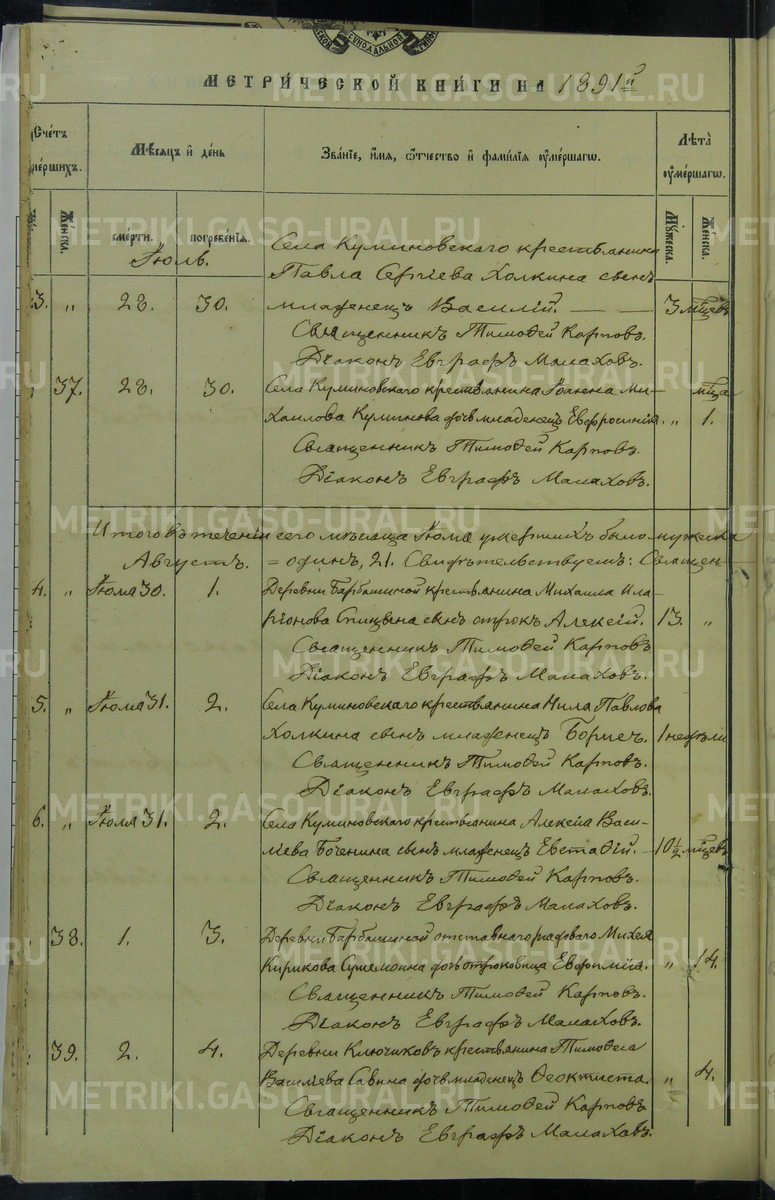 МЕТРИ́ЧЕСКОЙ КНИ́ГИ НА 1891й
Счётъ
мершихъ.
Мѣсяцъ и день
Зва́нїе, и́мя, ѻ́тчество и фами́лїя ᲂуме́ршагѡ.
Лѣта̀
ᲂуме́ршагѡ.
Же́нска.
сме́рти.
погребе́нїя.
Му́жеска.
Же́нска.
Іюль.
Села Куминовскаго крестьянина
Павла Сергіева Холкина сынъ
3. „ 28. 30. младенецъ Василій. — — 3 мцевъ
Священникъ Тимофей Карповъ.
Діаконъ Евграфъ Малаховъ.
37. 28. 30. Села Куминовскаго крестьянина Іоанна Ми- мца
хаилова Куминова дочь младенецъ Евфросинія. „ 1.
Священникъ Тимофей Карповъ.
Діаконъ Евграфъ Малаховъ.
Итого въ теченіи сего мѣсяца Іюля умершихъ было мужеска
Августъ. = одинъ, 21. Свидѣтельствуемъ: Священ-
4. „ Іюля 30. 1. Деревни Барбашиной крестьянина Михаила Ила-
ріонова Спицына сынъ отрокъ Алексій. 13. „
Священникъ Тимофей Карповъ
Діаконъ Евграфъ Малаховъ.
5. „ Іюля 31. 2. Села Куминовскаго крестьянина Нила Павлова
Холкина сынъ младенецъ Борисъ. 1 недѣли
Священникъ Тимофей Карповъ.
Діаконъ Евграфъ Малаховъ.
6. „ Іюля 31. 2. Села Куминовскаго крестьянина Алексія Васи-
ліева Боченина сынъ младенецъ Евстафій. — 10½ мцевъ
Священникъ Тимофей Карповъ.
Діаконъ Евграфъ Малаховъ.
38. 1. 3. Деревни Барбашиной отставнаго рядоваго Михея
Кирикова дочь отроковица Евфимія. „ 14.
Священникъ Тимофей Карповъ.
Діаконъ Евграфъ Малаховъ.
39. 2. 4. Деревни Ключиковъ крестьянина Тимофея
Василіева Савина дочь младенецъ Феоктиста. „ 4.
Священникъ Тимофей Карповъ
Діаконъ Евграфъ Малаховъ.
METRIKI.GASO-URAL.RU